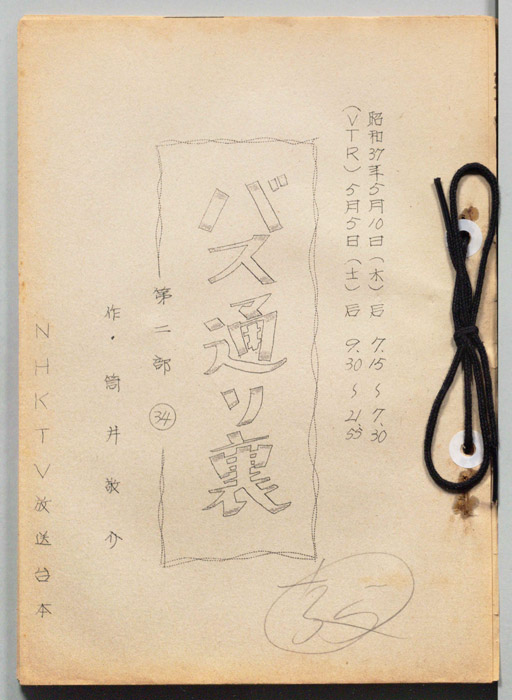 昭和37年5月10日(木)后 7.15〜7.30
(VTR)5月5日(土)后 9.30〜21.55
バス通り裏
第二部 34
作・筒井敬介
NHKTV放送台本